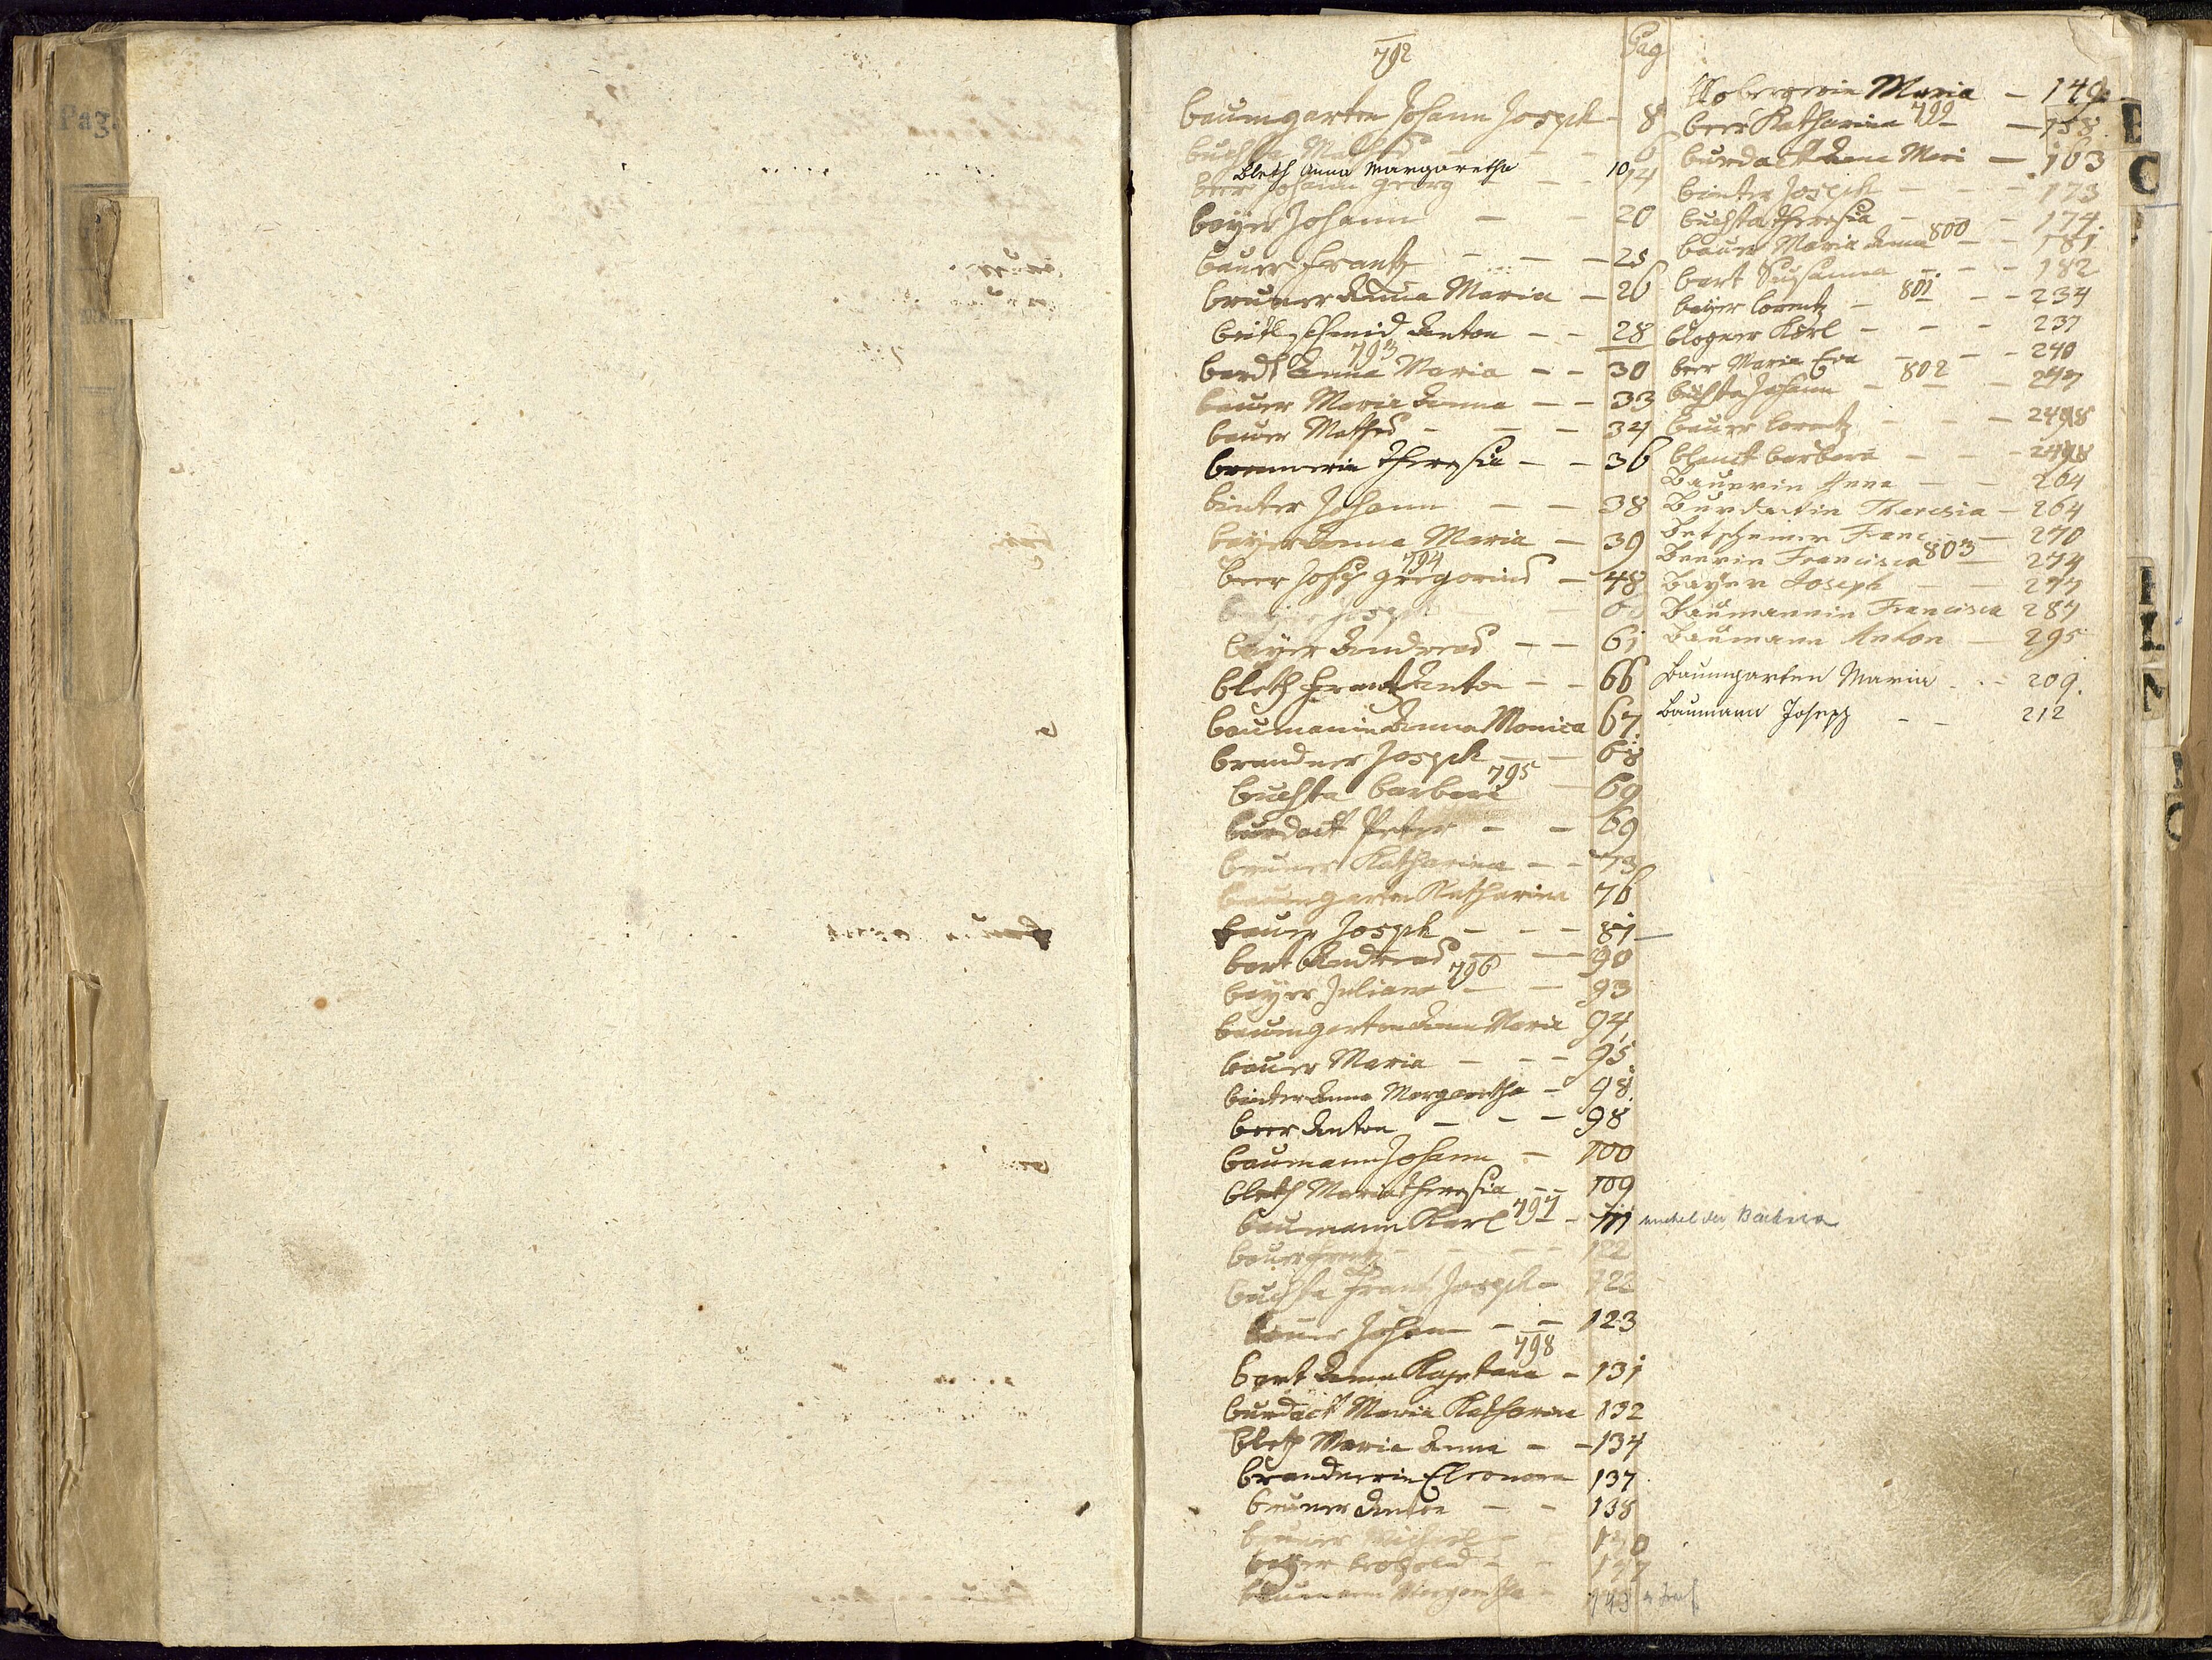 Pag.
792
Pag
baumgarten Johann Joseph - 8
buchta Mathes - - 6
Bleth Anna Margaretha 10
beer Johann Georg - - 14
bayer Johann - - 20
bauer Frantz - - - 25
bruner Anna Maria - 26
beitlschmid Anton - - 28
793
bardt Anna Maria - - 30
bauer Maria Anna - - 33
bauer Mathes - - - 34
brunnerin Theresia - - 36
binter Johann - - 38
bayer Anna Maria - 39
794
beer Joseph Gregorius - 48
Joseph
bayer Andreas - - 61
bleth Frantz Anton - - 66
baumanin Anna Monica 67
brandner Joseph - - 68
795
buchta barbara - 69
burdact Peter - - 69
bruner Katharina - - 73
baumgarten Katharina 76
bauer Joseph - - - 81
bart Andreas - - 90
796
bayer Juliana - - 93
baumgarten Anna Maria 94
bauer Maria - - - 95
binter Anna Margaretha - 98
beer Anton - - - 98
baumann Johann - 100
bleth Maria Theresia - - 109
797
baumann Karl - - 111
bauer Frantz - - - 122
buchta Frantz Joseph - 122
bauer Johann - - 123
798
bart Anna Kajetana - 131
burdact Maria Katharina 132
bleth Maria Anna - - 134
brandnerin Eleonora 137
bruner Anton - - 138
bruner Michael -
bayer Leopold - -
baumann Margaretha - 148
Maria - 149
799
beer Katharina - - 158
burdact Anna Mari - 163
binter Joseph - - - 173
buchta Theresia - - - 174
800
bauer Maria Anna - - 181
bart Susanna - - - 182
801
bayer Lorentz - - - 234
blogner Karl - - - 237
beer Maria Eva - - - 240
802
buchta Johann - - - 247
bauer Lorentz - - - 248
blanck barbara - - - 248
Bauerin Anna - - 264
Burdactin Theresia - 264
Betscheiner Franc - 270
803
Beerin Francisca - 274
Bayer Joseph - - 277
Baumannin Francisca 287
Baumann Anton - 295
Baumgarten Maria - - 209.
Baumann Joseph - - 212